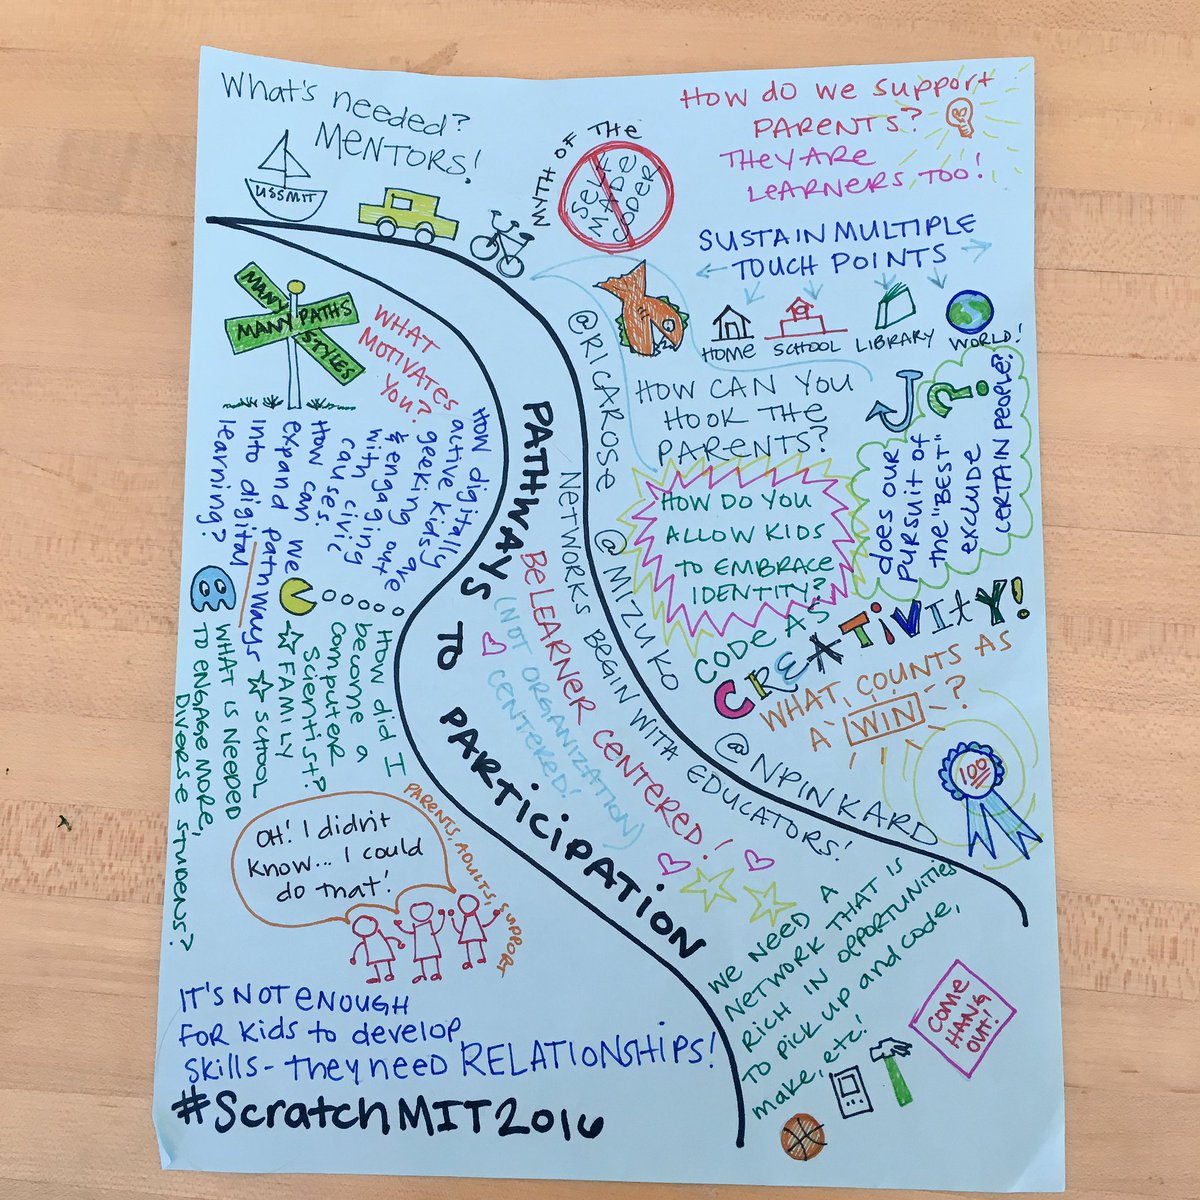 What's needed?
MENTORS!
USSMIT
MYTH OF THE
SELF
MADE
CODER
How do we support
PARENTS?
They are
learners, too!
SUSTAIN MULTIPLE
TOUCH POINTS
HOME
SCHOOL
LIBRARY
WORLD!
HOW CAN YOU
HOOK THE
PARENTS?
does our
pursuit of
the "BEST"
exclude
CERTAIN PEOPLE?
MANY
MANY PATHS
STYLES
WHAT
MOTIVATES
YOU?
How digitally
active kids
geeking out are
& engaging
with civic
causes.
How can we
expand pathways
into digital
learning?
@RICAROSE
@MIZUKO
@NPINKARD
PATHWAYS TO PARTICIPATION
NETWORKS BEGIN WITH EDUCATORS!
BE LEARNER CENTERED!
(NOT ORGANIZATION
CENTERED!)
HOW DO YOU
ALLOW KIDS
TO EMBRACE
IDENTITY?
CODE AS
CREATIVITY!
WHAT COUNTS AS
A WIN?
100
How did I
become a
computer
scientist?
☆ SCHOOL
☆ FAMILY
WHAT IS NEEDED
TO ENGAGE MORE,
DIVERSE STUDENTS?
OH! I didn't
know... I could
do that!
PARENTS, ADULTS, SUPPORT
WE NEED A
NETWORK THAT IS
RICH IN OPPORTUNITIES
TO PICK UP and code,
make, etc!
COME
HANG
OUT!
IT'S NOT ENOUGH
FOR kids to develop
skills - they need RELATIONSHIPS!
#ScratchMIT2016